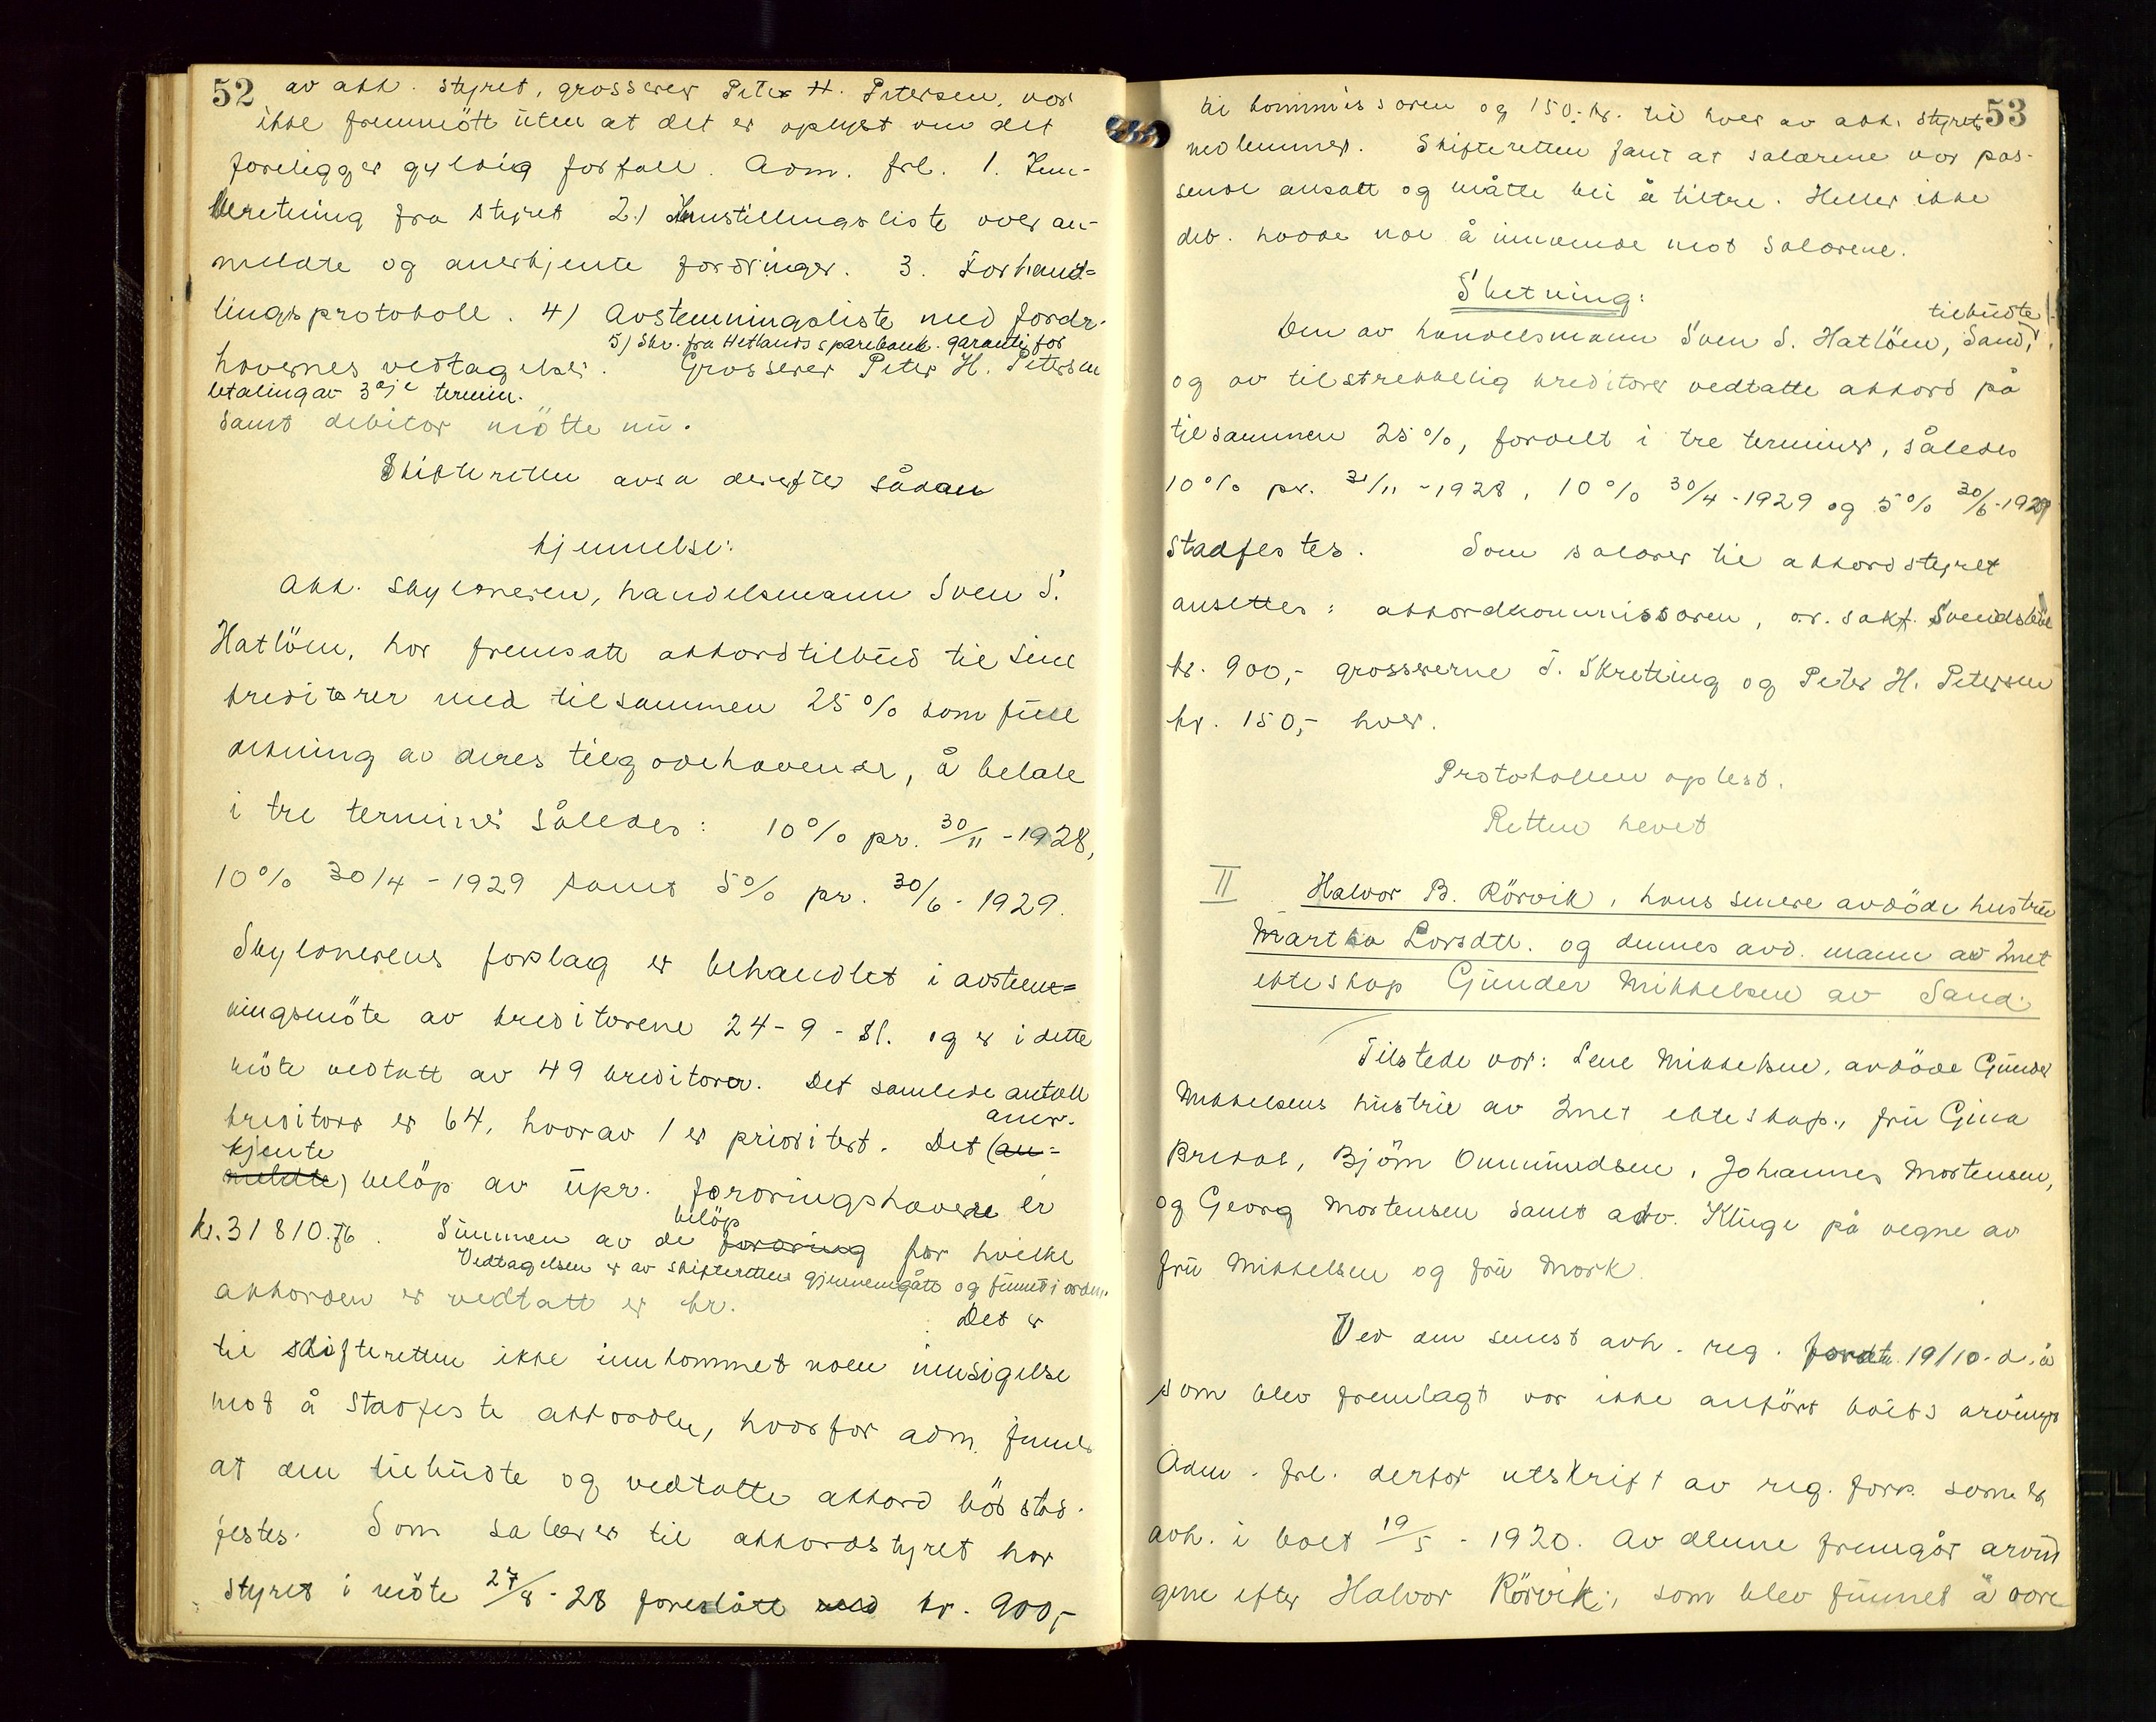 52 av akk. styret, grosserer Peter H. Petersen, var
ikke fremmött uten at det er oplyst om det
foreligger gyldig forfall. Adm. frl. 1. Inn-
beretning fra styret 2.) Innstillingsliste over an-
meldte og anerkjente fordringer. 3. Forhand-
lingsprotokoll. 4) Avstemningsliste med fordr.
5) Skr. fra Hetlands sparebank. garanti for
havernes vedtagelse. Grosserer Peter H. Petersen
betaling av 3dje termin.
samt debitor mötte nu.
Skifteretten avsa derefter sådan
kjennelse:
Akk. skyldneren, handelsmann Sven S.
Hatlöen, har fremsatt akkordtilbud til sine
kreditorer med tilsammen 25% som full
dekning av deres tilgodehavender, å betale
i tre terminer således: 10% pr. 30/11 - 1928,
10% 30/4 - 1929 samt 5% pr. 30/6 - 1929.
Skyldnerens forslag er behandlet i avstem-
ningsmöte av kreditorene 24-9-sl. og er i dette
möte vedtatt av 49 kreditorer. Det samlede antall
kreditorer er 64, hvorav 1 er prioritert. Det (an-
aner-
kjente
meldte) belöp av upr. fordringshavere er
kr. 31810.76. Summen av de fordring for hvilke
belöp
Vedtagelsen er av skifteretten gjennemgått og funnet i orden.
akkorden er vedtatt er kr. Det er
til skifteretten ikke innkommet noen innsigelse
mot å stadfeste akkorden, hvorfor adm. finner
at den tilbudte og vedtatte akkord bör stad-
festes. Som salærer til akkordstyret har
styret i möte 27/8-28 foreslått med kr. 900,-
53
til kommissæren og 150.- kr. til hver av akk. styrets
medlemmer. Skifteretten fant at salærene var pas-
sende ansatt og måtte bli å tiltre. Heller ikke
deb. hadde noe å innvende mot salærene.
Slutning:
tilbudte
Den av handelsmann Sven S. Hatlöen, Sand,
og av tilstrekkelig kreditorer vedtatte akkord på
tilsammen 25%, fordelt i tre terminer, således
10% pr. 31/11 - 1928, 10% 30/4 - 1929 og 5% 30/6 - 1929
stadfestes. Som salærer til akkordstyret
ansettes: akkordkommissæren, o.r. sakf. Svendsbøe
kr. 900,- grossererne T. Skretting og Peter H. Petersen
kr. 150,- hver.
Protokollen oplest.
Retten hevet
II Halvor B. Rörvik, hans senere avdöde hustru
Martha Larsdtr. og dennes avd. mann av 2net
ekteskap Gunder Mikkelsen av Sand.
Tilstede var: Lene Mikkelsen, avdöde Gunder
Mikkelsens hustru av 2net ekteskap., fru Gina
Bredal, Björn Ommundsen, Johannes Mortensen,
og Georg Mortensen samt adv. Kluge på vegne av
fru Mikkelsen og fru Mork
Ved den senest avh. reg. forretn. 19/10. d.å
som blev fremlagt var ikke anfört boets arvinger
Adm. frl. derfor utskrift av reg. forr. som er
avh. i boet 19/5 - 1920. Av denne fremgår arvin
gene efter Halvor Rörvik; som blev funnet å være